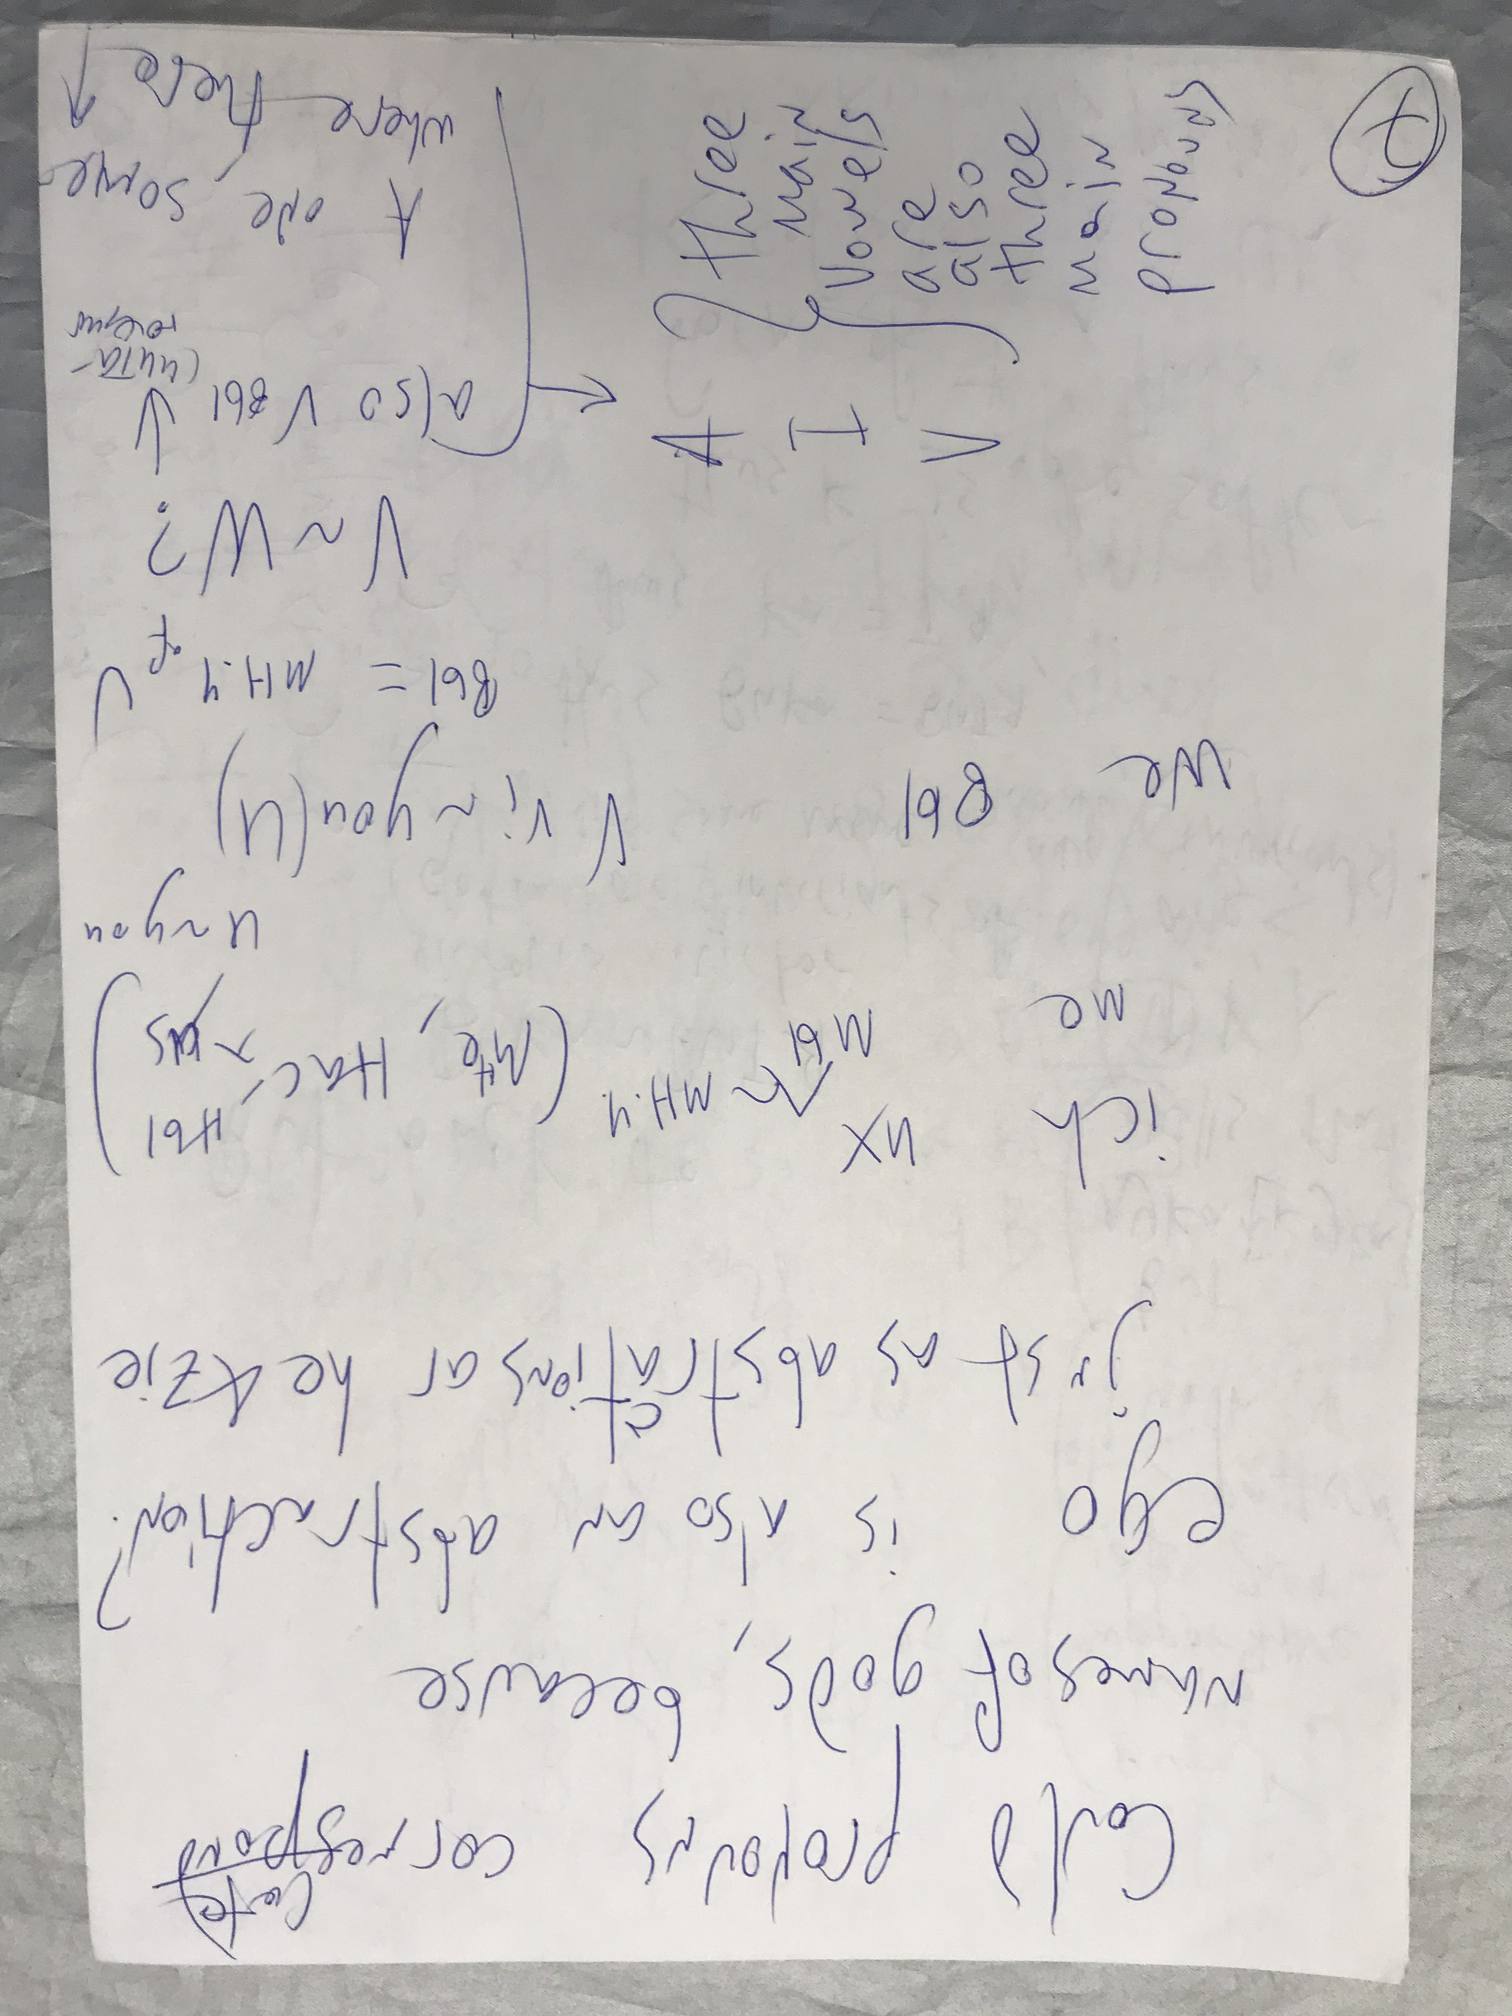 Could pronouns correspond
names of gods, because
ego is also an abstraction?
just as abstractions ar he
ich их
me мы ~ мн.ч (Me, нас ~ us ны)
u ~ you
we вы V vi ~ you (U)
вы = мн.ч of V
V ~ W?
also V вы ↓
A one, some
where there ↑
A
I
V
three
main
vowels
are
also
three
main
pronouns